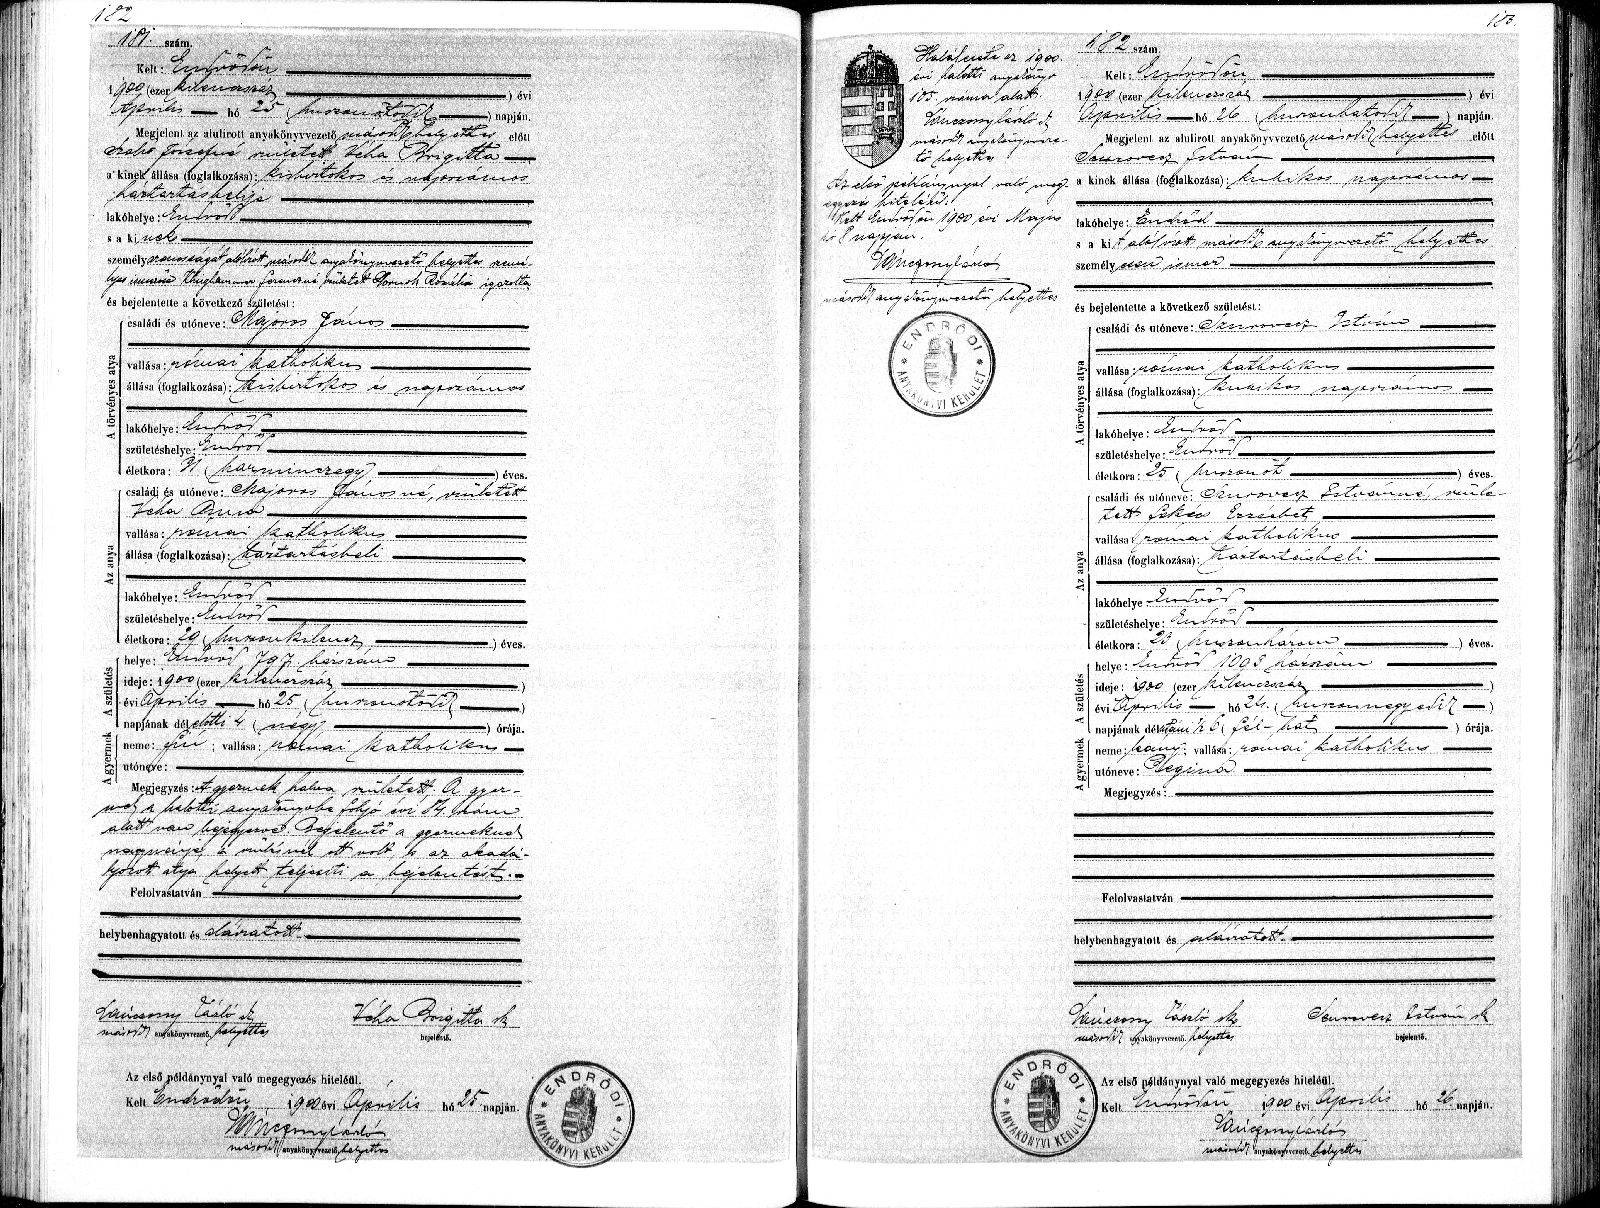 182
181. szám.
Kelt: Endrődön
1900 (ezer kilenczszáz) évi
Április hó 25 (huszonötödik) napján.
Megjelent az alulirott anyakönyvvezető másodk helyettes előtt
Szabó Józsefné született Véha Brigitta
a kinek állása (foglalkozása): kisbirtokos és napszámos
háztartásbelije
lakóhelye: Endrőd
s a kinek
személyazonosságát alólirott másodk anyakönyvvezető helyettes szemé-
lyes ismerőse Ferenczné született Rozália igazolta
és bejelentette a következő születést:
A törvényes atya
családi és utóneve: Majoros János
vallása: római katholikus
állása (foglalkozása): kisbirtokos és napszámos
lakóhelye: Endrőd
születéshelye: Endrőd
életkora: 31 (harminczegy) éves.
Az anya
családi és utóneve: Majoros Jánosné, született
Véha Anna
vallása: római katholikus
állása (foglalkozása): háztartásbeli
lakóhelye: Endrőd
születéshelye: Endrőd
életkora: 29 (huszonkilencz) éves.
A születés
helye: Endrőd 797 házszám
ideje: 1900 (ezer kilenczszáz)
évi Április hó 25 (huszonötödik)
napjának délelőtti 4 (négy) órája.
A gyermek
neme: fiú; vallása: római katholikus
utóneve:
Megjegyzés: A gyermek halva született. A gyer-
mek a halotti anyakönyvbe folyó évi szám
alatt van bejegyezve. Bejelentő a gyermeknek
nagynénje, a szülésnél ott volt, s az akadá-
lyozott atya helyett teljesiti a bejelentést.
Felolvastatván
helybenhagyatott és aláiratott.
Vánczony László sk
másodk anyakönyvvezető helyettes
Véha Brigitta sk
bejelentő.
Az első példánynyal való megegyezés hiteléül.
Kelt Endrődön 1900 évi Április hó 25 napján.
Vánczony László
másodk anyakönyvvezető helyettes
ENDRŐDI
ANYAKÖNYVI KERÜLET
183.
Halálesete az 1900.
évi halotti anyakönyv
105. száma alatt.
Vánczony László sk
másodk anyakönyvveze-
tő helyettes
Az első példánynyal való meg-
egyezés hiteléül.
Kelt Endrődön 1900 évi Május
hó 8 napján.
Vánczony László
másodk anyakönyvvezető helyettes
ENDRŐDI
ANYAKÖNYVI KERÜLET
182 szám.
Kelt: Endrődön
1900 (ezer kilenczszáz) évi
Április hó 26 (huszonhatodik) napján.
Megjelent az alulirott anyakönyvvezető másodk helyettes előtt
Szurovecz István
a kinek állása (foglalkozása): kubikos napszámos
lakóhelye: Endrőd
s a kit alólirott másodk anyakönyvvezető helyettes
személyesen ismer
és bejelentette a következő születést:
A törvényes atya
családi és utóneve: Szurovecz István
vallása: római katholikus
állása (foglalkozása): kubikos napszámos
lakóhelye: Endrőd
születéshelye: Endrőd
életkora: 25 (huszonöt) éves.
Az anya
családi és utóneve: Szurovecz Istvánné, szüle-
tett Erzsébet
vallása: római katholikus
állása (foglalkozása): háztartásbeli
lakóhelye: Endrőd
születéshelye: Endrőd
életkora: 23 (huszonhárom) éves.
A születés
helye: Endrőd 1003 házszám
ideje: 1900 (ezer kilenczszáz)
évi Április hó 24. (huszonnegyedik)
napjának délutáni ½ 6 (fél-hat) órája.
A gyermek
neme: leány; vallása: római katholikus
utóneve: Regina
Megjegyzés:
Felolvastatván
helybenhagyatott és aláiratott.
Vánczony László sk
másodk anyakönyvvezető helyettes
Szurovecz István sk
bejelentő.
Az első példánynyal való megegyezés hiteléül.
Kelt Endrődön 1900 évi Április hó 26 napján.
Vánczony László
másodk anyakönyvvezető helyettes
ENDRŐDI
ANYAKÖNYVI KERÜLET